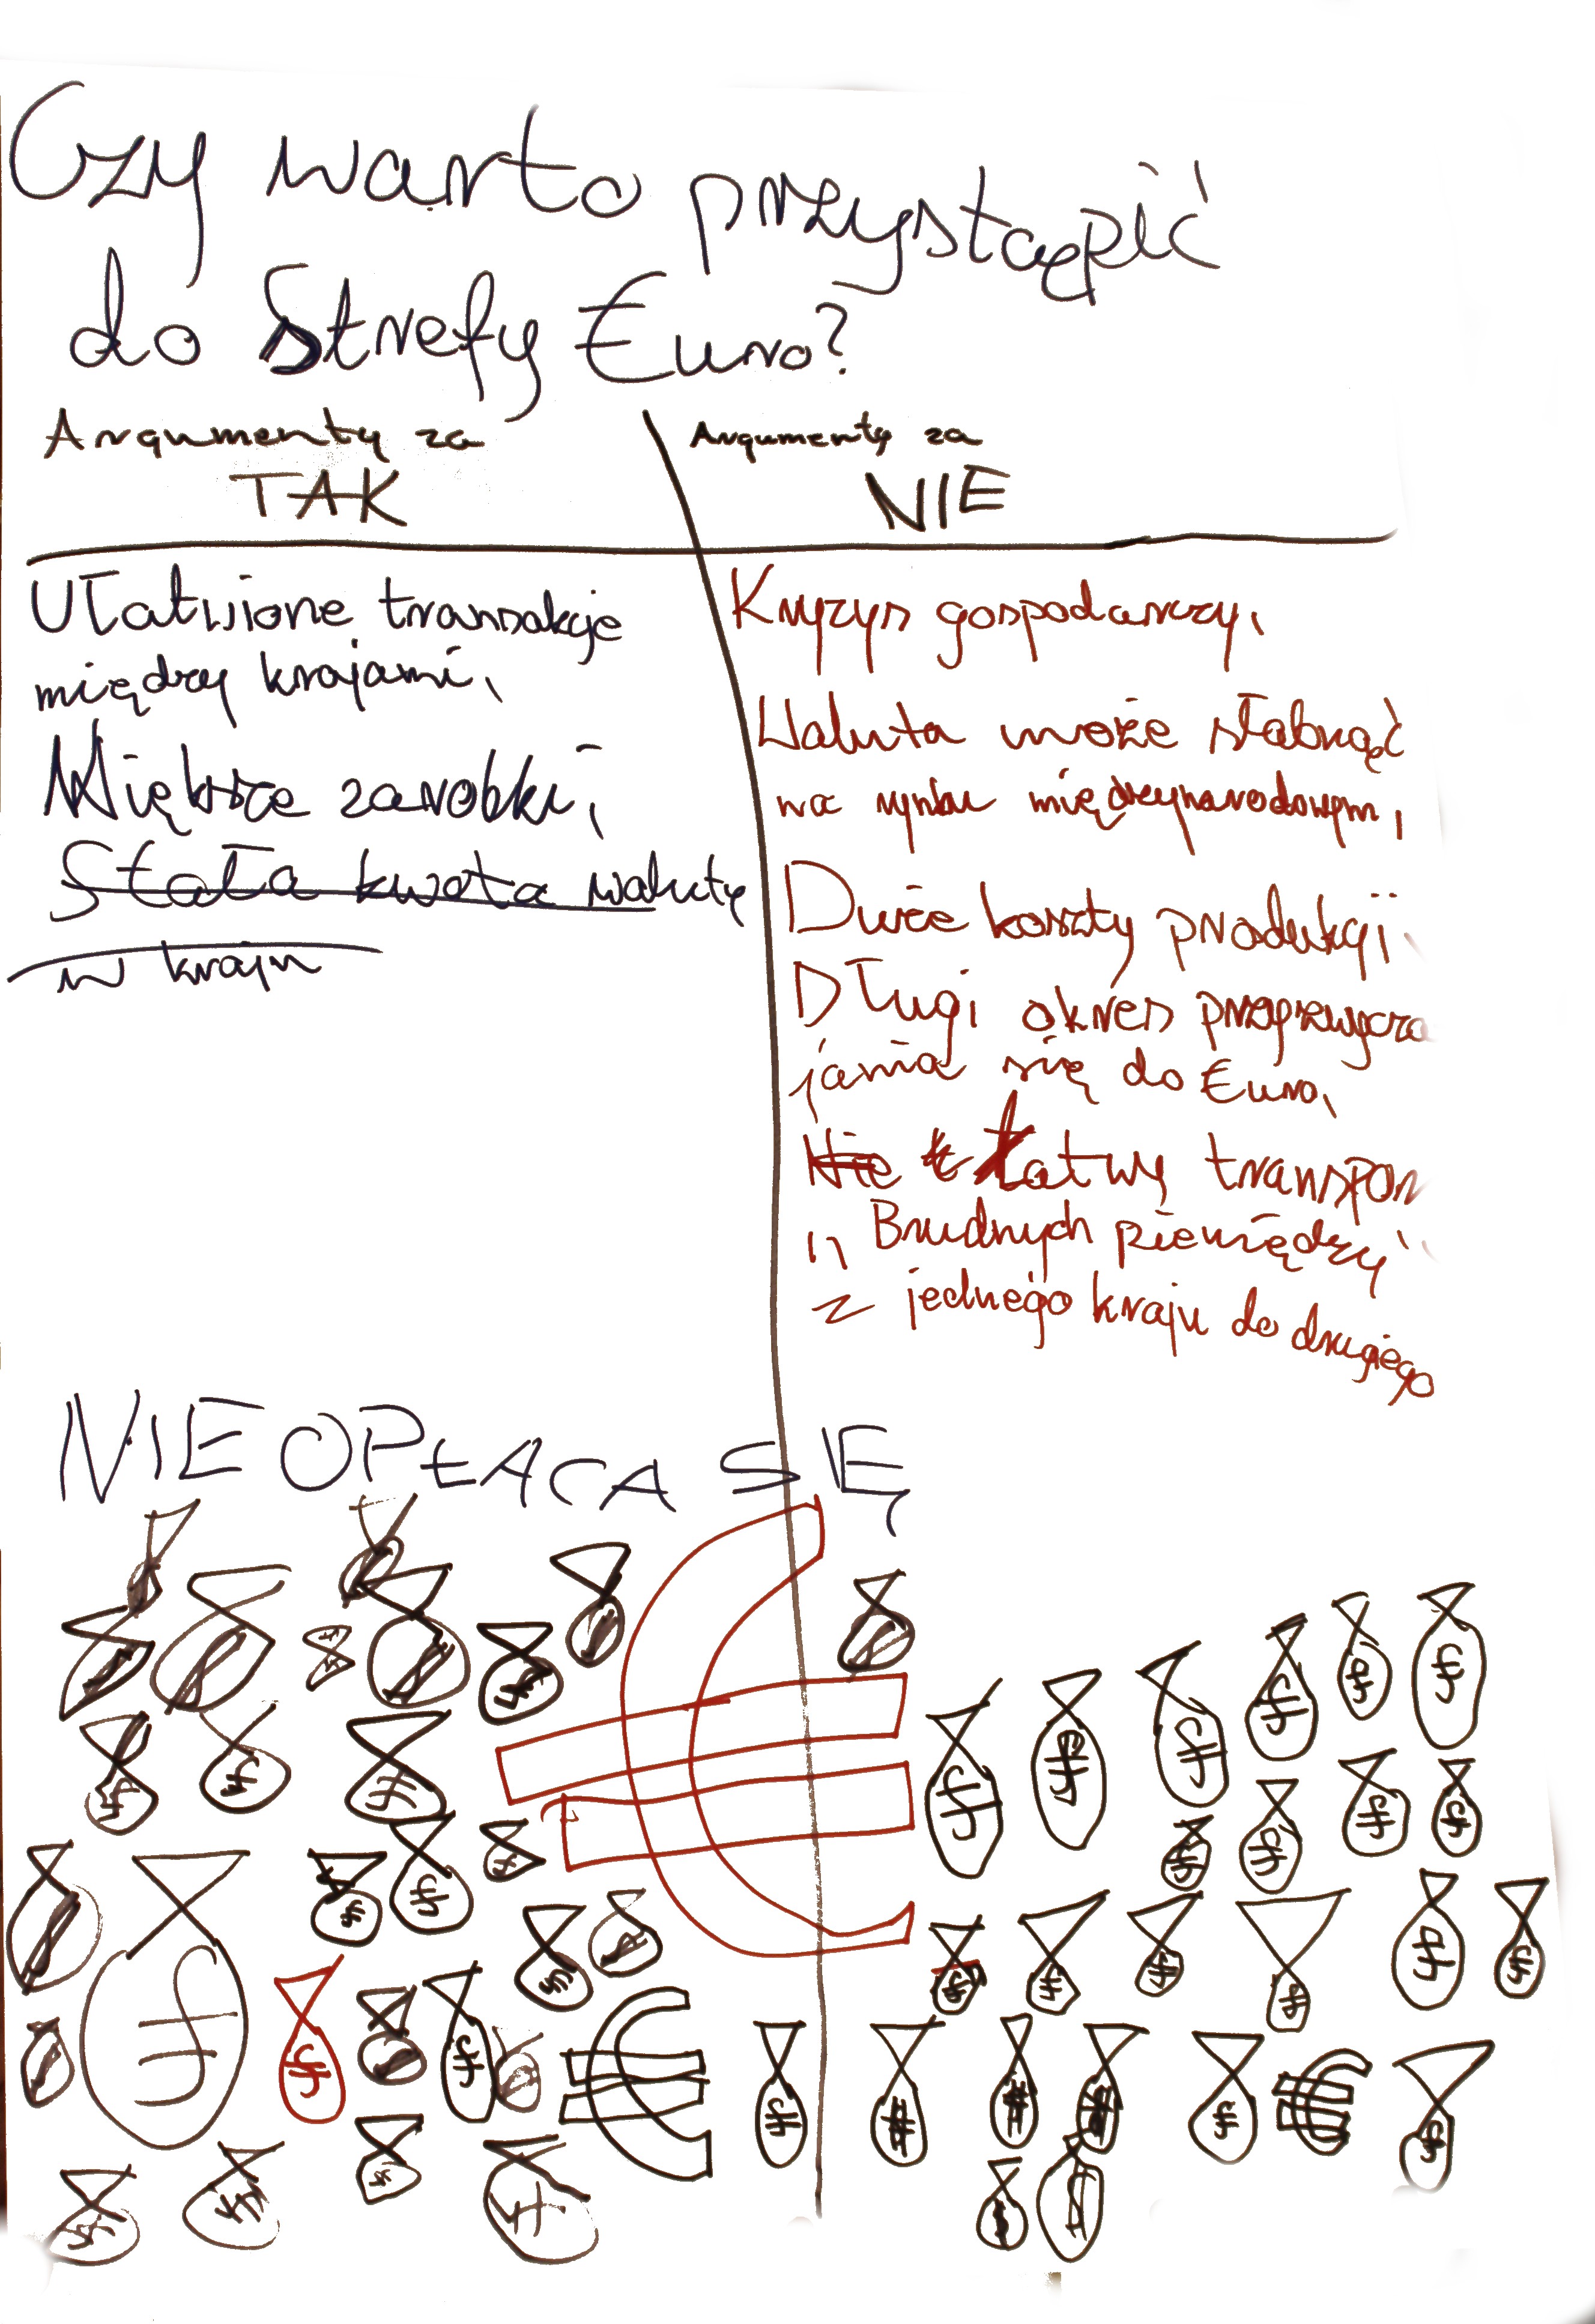 Czy warto przystąpić
do Strefy Euro?
Argumenty za
TAK
Ułatwione transakcje
między krajami,
Większe zarobki,
Stała kwota waluty
w kraju
Argumenty za
NIE
Kryzys gospodarczy,
Waluta może słabnąć
na rynku międzynarodowym,
Duże koszty produkcji.
Długi okres przyzwycza
jania się do Euro,
Nie łatwy transpor
,, Brudnych pieniędzy"
z jednego kraju do drugiego
NIE OPŁACA SIĘ
€